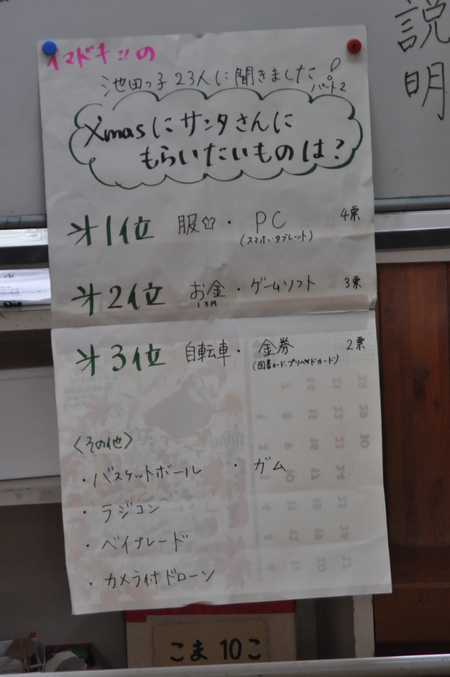 説明
イマドキッの
池田っ子23人に聞きました!
パート2
Xmasにサンタさんに
もらいたいものは?
才1位 服・PC 4票
(スマホ・タブレット)
才2位 お金・ゲームソフト 3票
1万円
才3位 自転車・金券 2票
(図書カード、プリペイドカード)
<その他>
・バスケットボール ・ガム
・ラジコン
・ベイブレード
・カメラ付ドローン
こま10こ